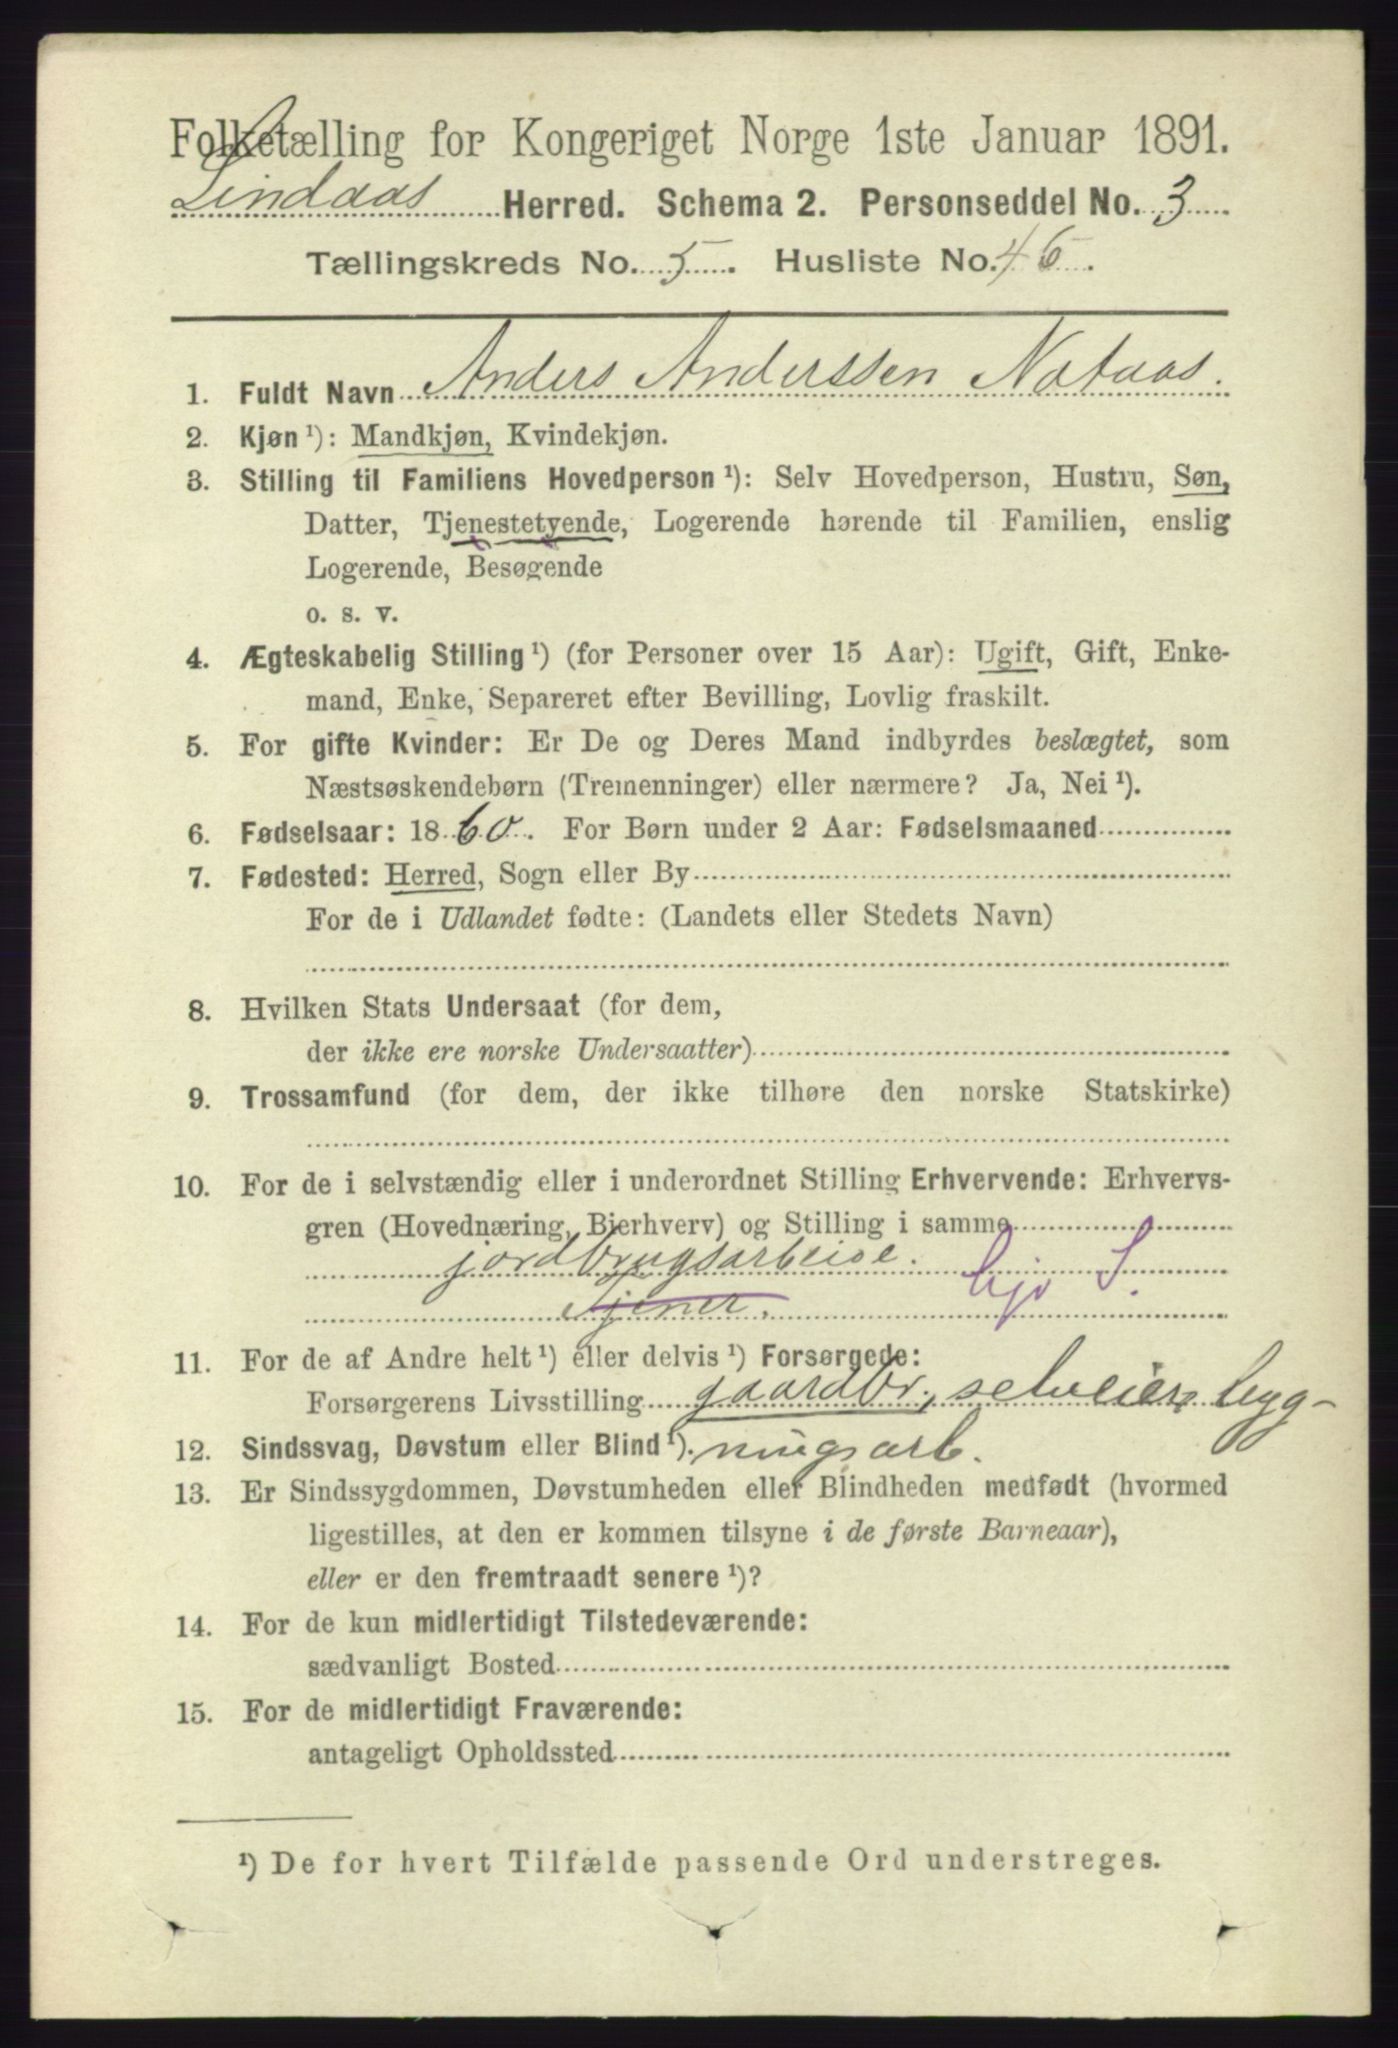 Folketælling for Kongeriget Norge 1ste Januar 1891.
Lindaas Herred. Schema 2. Personseddel No. 3
Tællingskreds No. 5. Husliste No. 46.
1. Fuldt Navn Anders Anderssen Nataas.
2. Kjøn ¹): Mandkjøn, Kvindekjøn.
3. Stilling til Familiens Hovedperson ¹): Selv Hovedperson, Hustru, Søn,
Datter, Tjenestetyende, Logerende hørende til Familien, enslig
Logerende, Besøgende
o. s. v.
4. Ægteskabelig Stilling ¹) (for Personer over 15 Aar): Ugift, Gift, Enke-
mand, Enke, Separeret efter Bevilling, Lovlig fraskilt.
5. For gifte Kvinder: Er De og Deres Mand indbyrdes beslægtet, som
Næstsøskendebørn (Tremenninger) eller nærmere? Ja, Nei ¹).
6. Fødselsaar: 1860. For Børn under 2 Aar: Fødselsmaaned
7. Fødested: Herred, Sogn eller By
For de i Udlandet fødte: (Landets eller Stedets Navn)
8. Hvilken Stats Undersaat (for dem,
der ikke ere norske Undersaatter)
9. Trossamfund (for dem, der ikke tilhøre den norske Statskirke)
10. For de i selvstændig eller i underordnet Stilling Erhvervende: Erhvervs-
gren (Hovednæring, Bierhverv) og Stilling i samme
jordbrugsarbeide.
Tjener. S.
11. For de af Andre helt ¹) eller delvis ¹) Forsørgede:
Forsørgerens Livsstilling gaardbr., selveier, byg-
12. Sindssvag, Døvstum eller Blind ¹). ningsarb.
13. Er Sindssygdommen, Døvstumheden eller Blindheden medfødt (hvormed
ligestilles, at den er kommen tilsyne i de første Barneaar),
eller er den fremtraadt senere ¹)?
14. For de kun midlertidigt Tilstedeværende:
sædvanligt Bosted
15. For de midlertidigt Fraværende:
antageligt Opholdssted
¹) De for hvert Tilfælde passende Ord understreges.